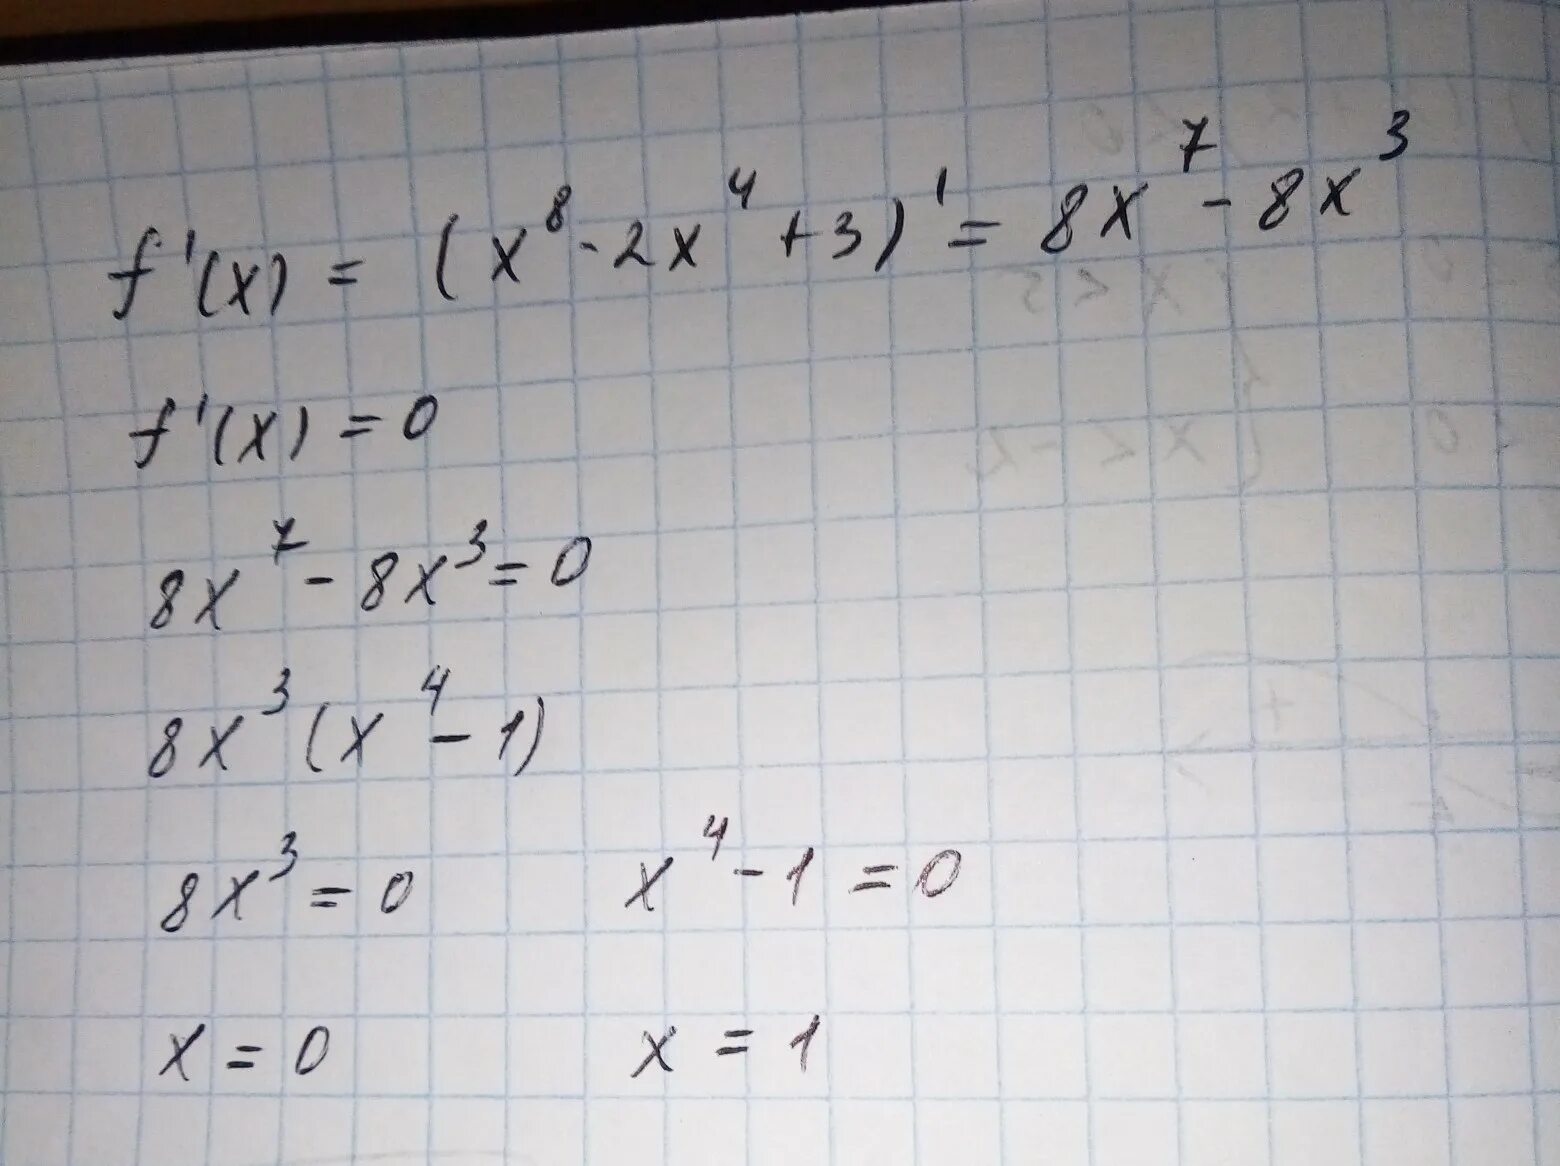 f'(x) = (x⁸ - 2x⁴ + 3)' = 8x⁷ - 8x³
f'(x) = 0
8x⁷ - 8x³ = 0
8x³(x⁴ - 1)
8x³ = 0 x⁴ - 1 = 0
x = 0 x = 1